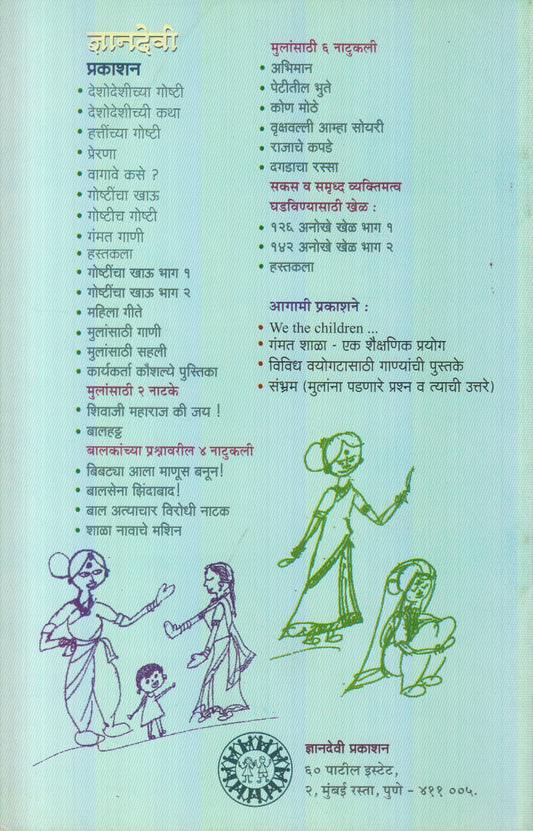 ज्ञानदेवी
प्रकाशन
• देशोदेशीच्या गोष्टी
• देशोदेशीच्यी कथा
• हत्तींच्या गोष्टी
• प्रेरणा
• वागावे कसे ?
• गोष्टींचा खाऊ
• गोष्टीच गोष्टी
• गंमत गाणी
• हस्तकला
• गोष्टींचा खाऊ भाग १
• गोष्टींचा खाऊ भाग २
• महिला गीते
• मुलांसाठी गाणी
• मुलांसाठी सहली
• कार्यकर्ता कौशल्ये पुस्तिका
मुलांसाठी २ नाटके
• शिवाजी महाराज की जय !
• बालहट्ट
बालकांच्या प्रश्नावरील ४ नाटुकली
• बिबट्या आला माणूस बनून!
• बालसेना झिंदाबाद!
• बाल अत्याचार विरोधी नाटक
• शाळा नावाचे मशिन
मुलांसाठी ६ नाटुकली
• अभिमान
• पेटीतील भुते
• कोण मोठे
• वृक्षवल्ली आम्हा सोयरी
• राजाचे कपडे
• दगडाचा रस्सा
सकस व समृध्द व्यक्तिमत्व
घडविण्यासाठी खेळ :
• १२६ अनोखे खेळ भाग १
• १४२ अनोखे खेळ भाग २
• हस्तकला
आगामी प्रकाशने :
• We the children ...
• गंमत शाळा - एक शैक्षणिक प्रयोग
• विविध वयोगटासाठी गाण्यांची पुस्तके
• संभ्रम (मुलांना पडणारे प्रश्न व त्याची उत्तरे)
ज्ञानदेवी प्रकाशन
६० पाटील इस्टेट,
२, मुंबई रस्ता, पुणे - ४११ ००५.